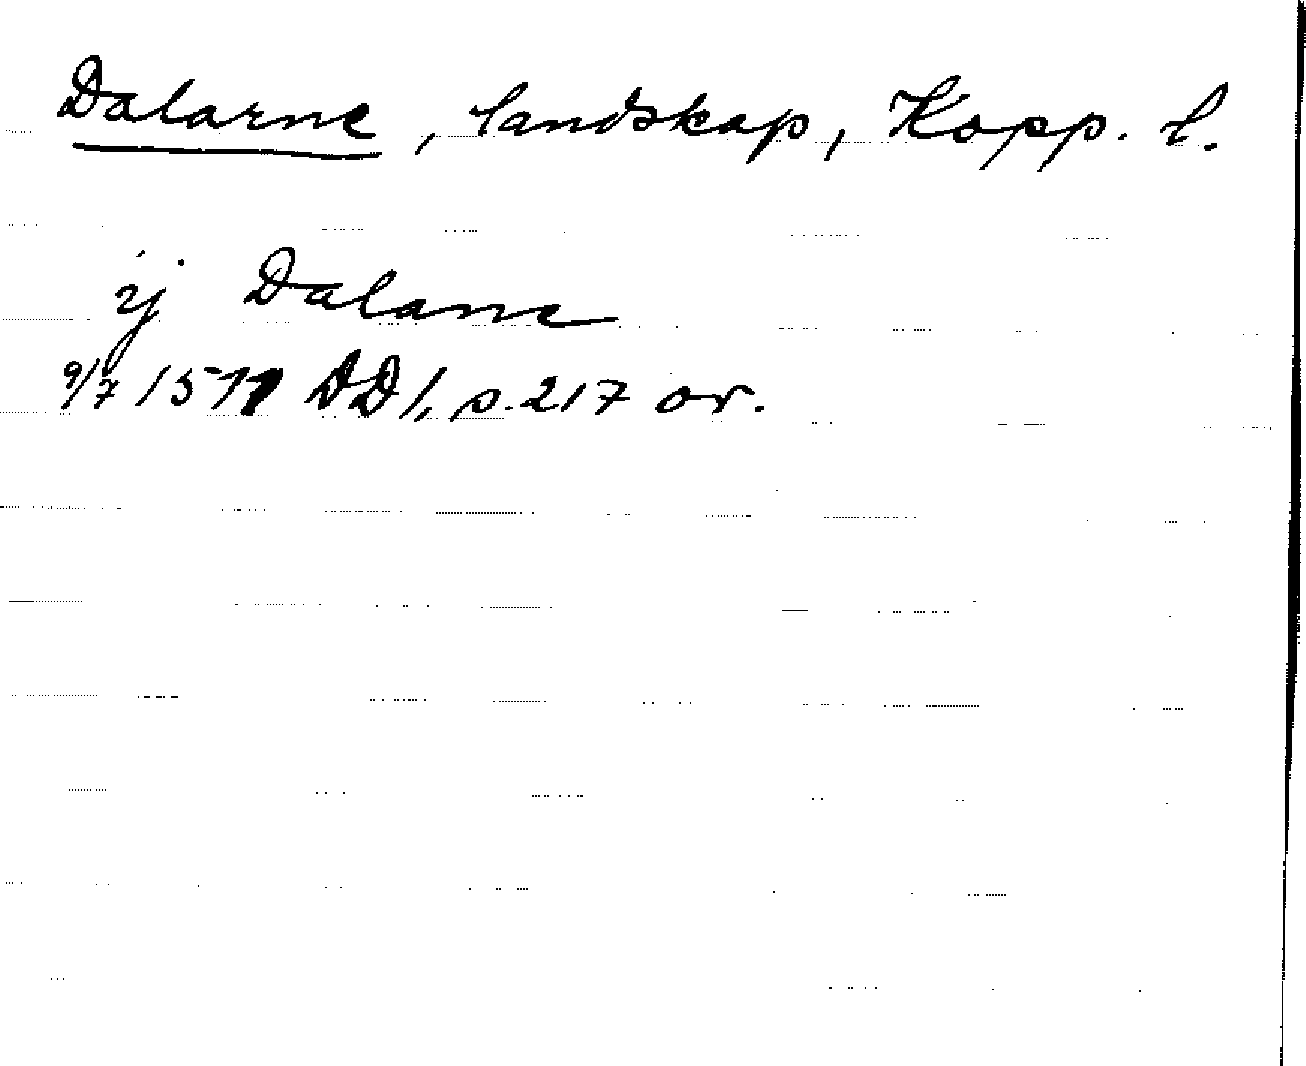 Dalarne, landskap, Kopp. l.
ij Dalane
9/7 1571 DD1, s. 217 or.